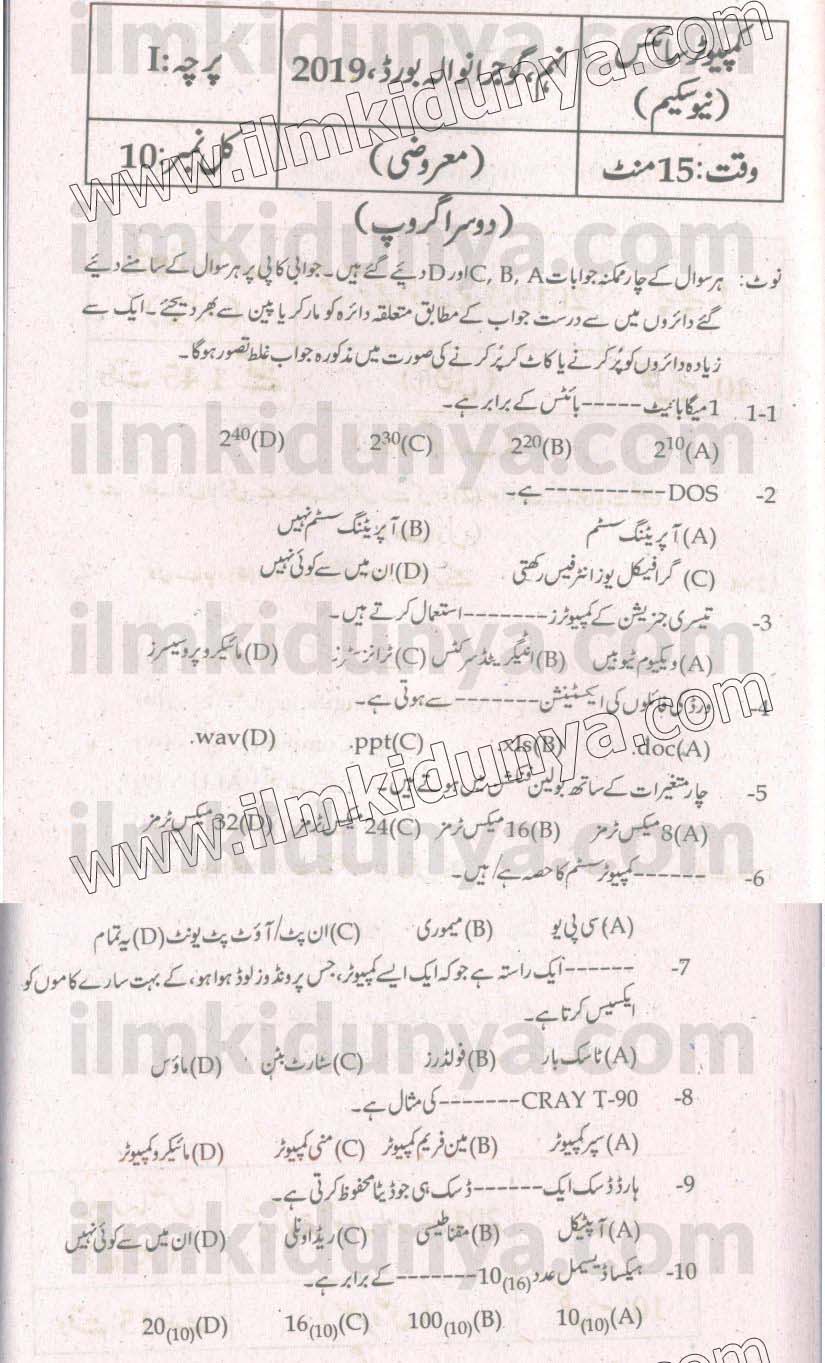 کمپیوٹر سائنس
(نیو سکیم)
نہم، گوجرانوالہ بورڈ، 2019
پرچہ: I
وقت: 15 منٹ
(معروضی)
کل نمبر: 10
(دوسرا گروپ)
نوٹ: ہر سوال کے چار ممکنہ جوابات C, B, A اور D دیئے گئے ہیں۔ جوابی کاپی پر ہر سوال کے سامنے دیئے
گئے دائروں میں سے درست جواب کے مطابق متعلقہ دائرہ کو مارکر یا پین سے بھر دیجئے۔ ایک سے
زیادہ دائروں کو پُر کرنے یا کاٹ کر پُر کرنے کی صورت میں مذکورہ جواب غلط تصور ہوگا۔
1-1 1 میگا بائیٹ ----- بائٹس کے برابر ہے۔
(A) 2¹⁰ (B) 2²⁰ (C) 2³⁰ (D) 2⁴⁰
-2 DOS ---------- ہے۔
(A) آپریٹنگ سسٹم (B) آپریٹنگ سسٹم نہیں
(C) گرافیکل یوزانٹرفیس رکھتی (D) ان میں سے کوئی نہیں
-3 تیسری جنریشن کے کمپیوٹرز ------- استعمال کرتے ہیں۔
(A) ویکیوم ٹیوبیں (B) انٹیگریٹڈ سرکٹس (C) ٹرانزسٹرز (D) مائیکرو پروسیسرز
-4 ورڈ کی فائلوں کی ایکسٹینشن ------- سے ہوتی ہے۔
(A) .doc (B) .xls (C) .ppt (D) .wav
-5 چار متغیرات کے ساتھ بولین فنکشن میں ہوتے ہیں۔
(A) 8 میکس ٹرمز (B) 16 میکس ٹرمز (C) 24 میکس ٹرمز (D) 32 میکس ٹرمز
-6 ------ کمپیوٹر سسٹم کا حصہ ہے/ہیں۔
(A) سی پی یو (B) میموری (C) ان پٹ/آؤٹ پٹ یونٹ (D) یہ تمام
-7 ------ ایک راستہ ہے جو کہ ایک ایسے کمپیوٹر، جس پر ونڈوز لوڈ ہوا ہو، کے بہت سارے کاموں کو
ایکسیس کرتا ہے۔
(A) ٹاسک بار (B) فولڈرز (C) سٹارٹ بٹن (D) ماؤس
-8 CRAY T-90 ------- کی مثال ہے۔
(A) سپر کمپیوٹر (B) مین فریم کمپیوٹر (C) منی کمپیوٹر (D) مائیکرو کمپیوٹر
-9 ہارڈ ڈسک ایک ------ ڈسک ہی جو ڈیٹا محفوظ کرتی ہے۔
(A) آپٹیکل (B) مقناطیسی (C) ریڈ اونلی (D) ان میں سے کوئی نہیں
-10 ہیکسا ڈیسیمل عدد 10₍₁₆₎ ------- کے برابر ہے۔
(A) 10₍₁₀₎ (B) 100₍₁₀₎ (C) 16₍₁₀₎ (D) 20₍₁₀₎
www.ilmkidunya.com
ilmkidunya.com
ilmkidunya.com
ilmkidunya.com
www.ilmkidunya.com
ilmkidunya.com
ilmkidunya.com
ilmkidunya.com